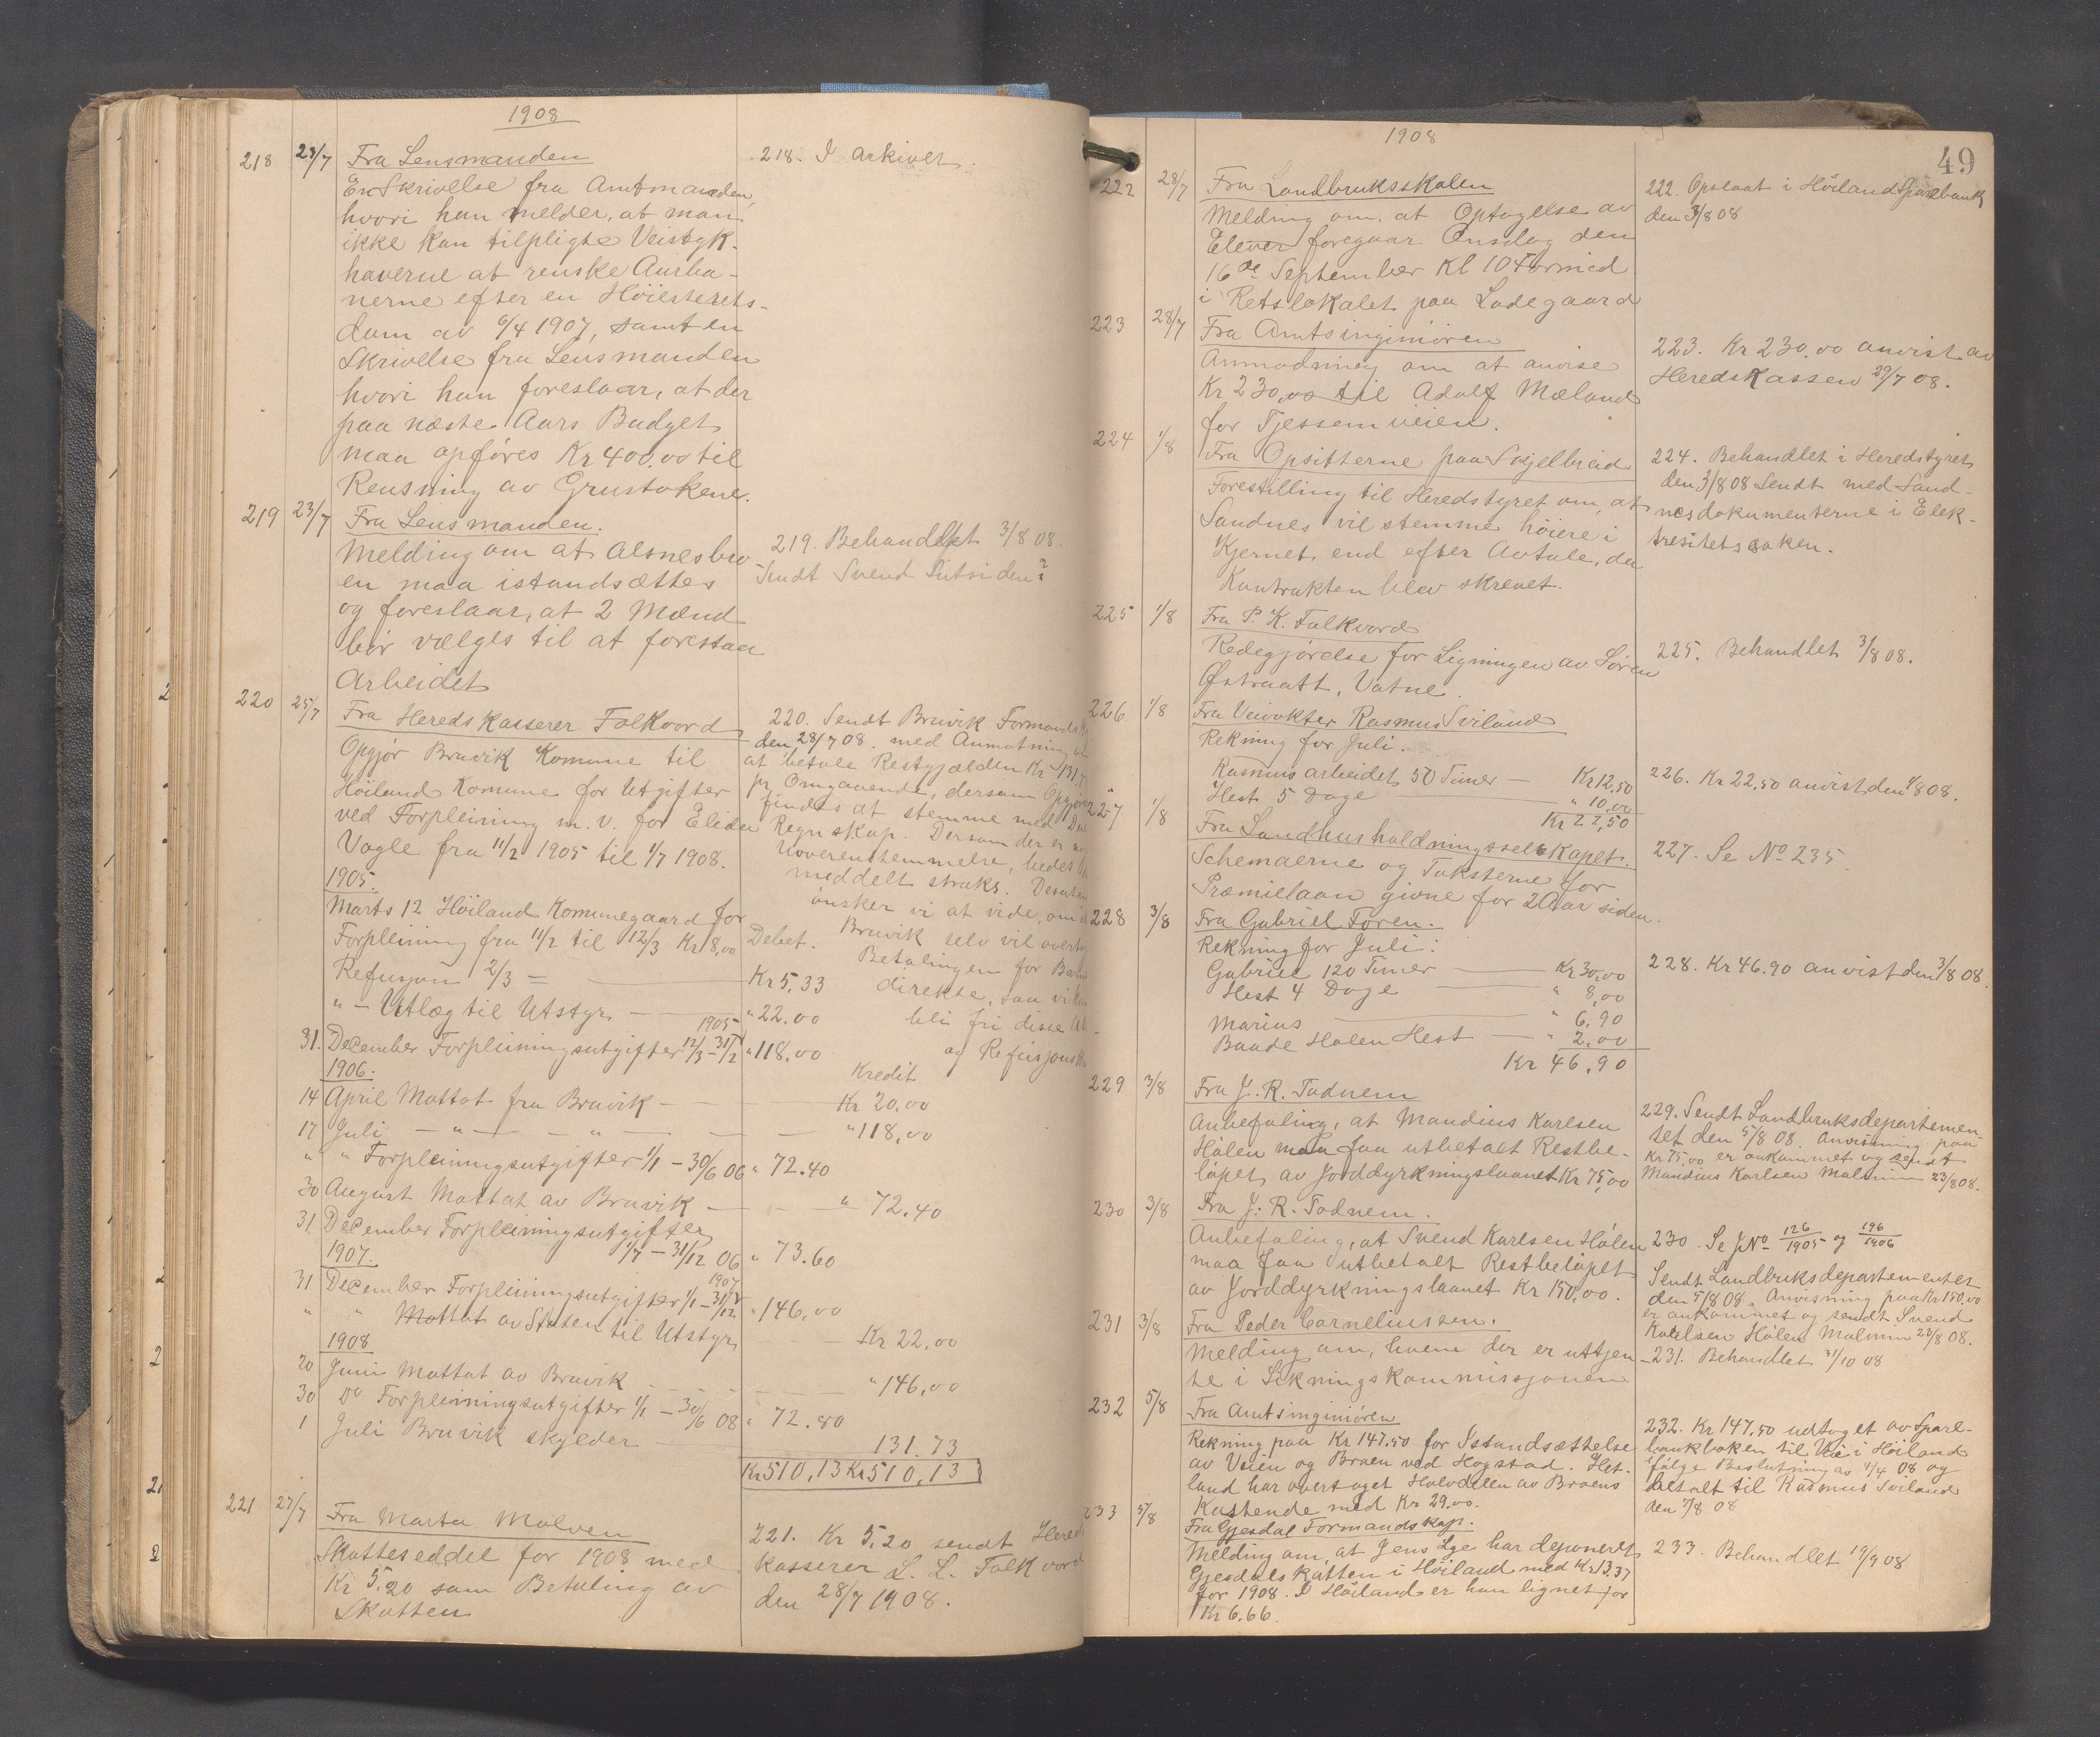 1908
218 23/7 Fra Lensmanden
En Skrivelse fra Amtmanden,
hvori han melder, at man
ikke kan tilpligte Veistyk-
haverne at renske Aurba-
nerne efter en Høiesterets-
dom av 6/4 1907, samt en
Skrivelse fra Lensmanden
hvori han foreslaar, at der
paa næste Aars Budget
maa opføres Kr 400,00 til
Rensning av Grustakene.
218. I arkivet.
219 23/7 Fra Lensmanden.
Melding om at Alsnesbro-
en maa istandsættes
og foreslaar, at 2 Mænd
bør vælges til at forestaa
Arbeidet
219. Behandlet 3/8 08.
Sendt Svend
220 25/7 Fra Heredskasserer Folkvord
Opgjør Bruvik Komune til
Høiland Komune for Utgifter
ved Forpleining m. v. for Eliden
Vagle fra 11/2 1905 til 1/7 1908.
220. Sendt Bruvik Formandsk
den 28/7 08. med Anmotning om
at betale Restgjælden Kr 131,73
pr. Omgaaende, dersom Opgjøret
findes at stemme med
Regnskap. Dersom der er
Uoverenstemmelse, bedes
meddelt straks. Desuten
ønsker vi at vide, om
Bruvik selv vil overta
Betalingen for Barnet
direkte, saa vi kan
bli fri disse Utl-
og Refusjons
1905.
Marts 12 Høiland Komunegaard for
Forpleining fra 11/2 til 12/3 Kr 8,00 Debet.
Refusjon 2/3 = Kr 5,33
" — Utlæg til Utstyr " 22.00
31. December Forpleiningsutgifter 12/3 – 31/12 1905 " 118,00
Kredit
1906.
14 April Mottat fra Bruvik — Kr 20,00
17 Juli — " — " — " 118,00
" " Forpleiningsutgifter 1/1 – 30/6 06 " 72.40
30 August Mottat av Bruvik — " 72.40
31 December Forpleiningsutgifter
1/7 – 31/12 06 " 73.60
1907.
31 December Forpleiningsutgifter 1/1 – 31/12 1907 " 146,00
" " Mottat av Staten til Utstyr — Kr 22,00
1908
20 Juni Mottat av Bruvik " 146,00
30 Do Forpleiningsutgifter 1/1 – 30/6 08 " 72.80
1 Juli Bruvik skylder 131.73
Kr 510,13 Kr 510,13
221 27/7 Fra Marta Malven
Skatteseddel for 1908 med
Kr 5.20 som Betaling av
Skatten
221. Kr 5,20 sendt Hereds
kasserer L. L. Folkvord
den 28/7 1908.
1908
49
222 28/7 Fra Landbruksskolen
Melding om, at Optagelse av
Elever foregaar Onsdag den
16de September Kl 10 Formid
i Retslokalet paa Ladegaard
222. Opslaat i Høiland Sparebank
den 3/8 08
223 28/7 Fra Amtsingeniøren
Anmodning om at anvise
Kr 230,00 til Adolf Mæland
for Tjessemveien.
223. Kr 230.00 anvist av
Heredskassen 29/7 08.
224 1/8 Fra Opsitterne paa Skjelbreid
Forestilling til Heredstyret om, at
Sandnes vil stemme høiere i
Kjernet end efter Avtale, da
Kontrakten blev skrevet.
224. Behandlet i Heredstyret
den 3/8 08 Sendt med Sand-
nesdokumenterne i Elek-
tresitetssaken.
225 1/8 Fra P. K. Folkvord
Redegjørelse for Ligningen av Søren
Østraatt, Vatne.
225. Behandlet 3/8 08.
226 1/8 Fra Veivokter Rasmus Sviland
Rekning for Juli.
Rasmus arbeidet 50 Timer — Kr 12,50
Hest 5 Dage — " 10,00
Kr 22,50
226. Kr 22,50 anvist den 1/8 08.
227 1/8 Fra Landhusholdningsselskapet.
Schemaerne og Taksterne for
Præmielaan givne for 2 Aar siden.
227. Se No 235
228 3/8 Fra Gabriel Foren.
Rekning for Juli:
Gabriel 120 Timer — Kr 30,00
Hest 4 Dage — " 8,00
Marius — " 6,90
Baade Hølen Hest — " 2,00
Kr 46,90
228. Kr 46.90 anvist den 3/8 08.
229 3/8 Fra J. R. Todnem
Anbefaling, at Mandius Karlsen
Hølen maa faa utbetalt Restbe-
løpet av Jorddyrkningslaanet Kr 75,00
229. Sendt Landbruksdepartemen-
tet den 5/8 08. Anvisning paa
Kr 75,00 er ankommet og sendt
Mandius Karlsen Malmin 23/8 08.
230 3/8 Fra J. R. Todnem.
Anbefaling, at Svend Karlsen Hølen
maa faa utbetalt Restbeløpet
av Jorddyrkningslaanet Kr 150,00.
230. Se JNo 126/1905 og 196/1906
Sendt Landbruksdepartementet
den 5/8 08. Anvisning paa Kr 150,00
er ankommet og sendt Svend
Karlsen Hølen Malmin 23/8 08.
231 3/8 Fra Peder Corneliussen.
Melding om, hvem der er uttjen-
te i Likningskommissjonen
231. Behandlet 31/10 08
232 5/8 Fra Amtsingeniøren
Rekning paa Kr 147.50 for Istandsættelse
av Veien og Broen ved Hogstad. Het-
land har overtaget Halvdelen av Broens
Kostende med Kr 29.00.
232. Kr 147,50 udtaget av Spare-
bankboken til Vei i Høiland
ifølge Beslutning av 4/4 08 og
betalt til Rasmus Sviland
den 7/8 08
233 5/8 Fra Gjesdal Formandskap.
Melding om, at Jens Lye har deponeret
Gjesdalskatten i Høiland med Kr 13,37
for 1908. I Høiland er han lignet for
Kr 6.66.
233. Behandlet 19/9 08